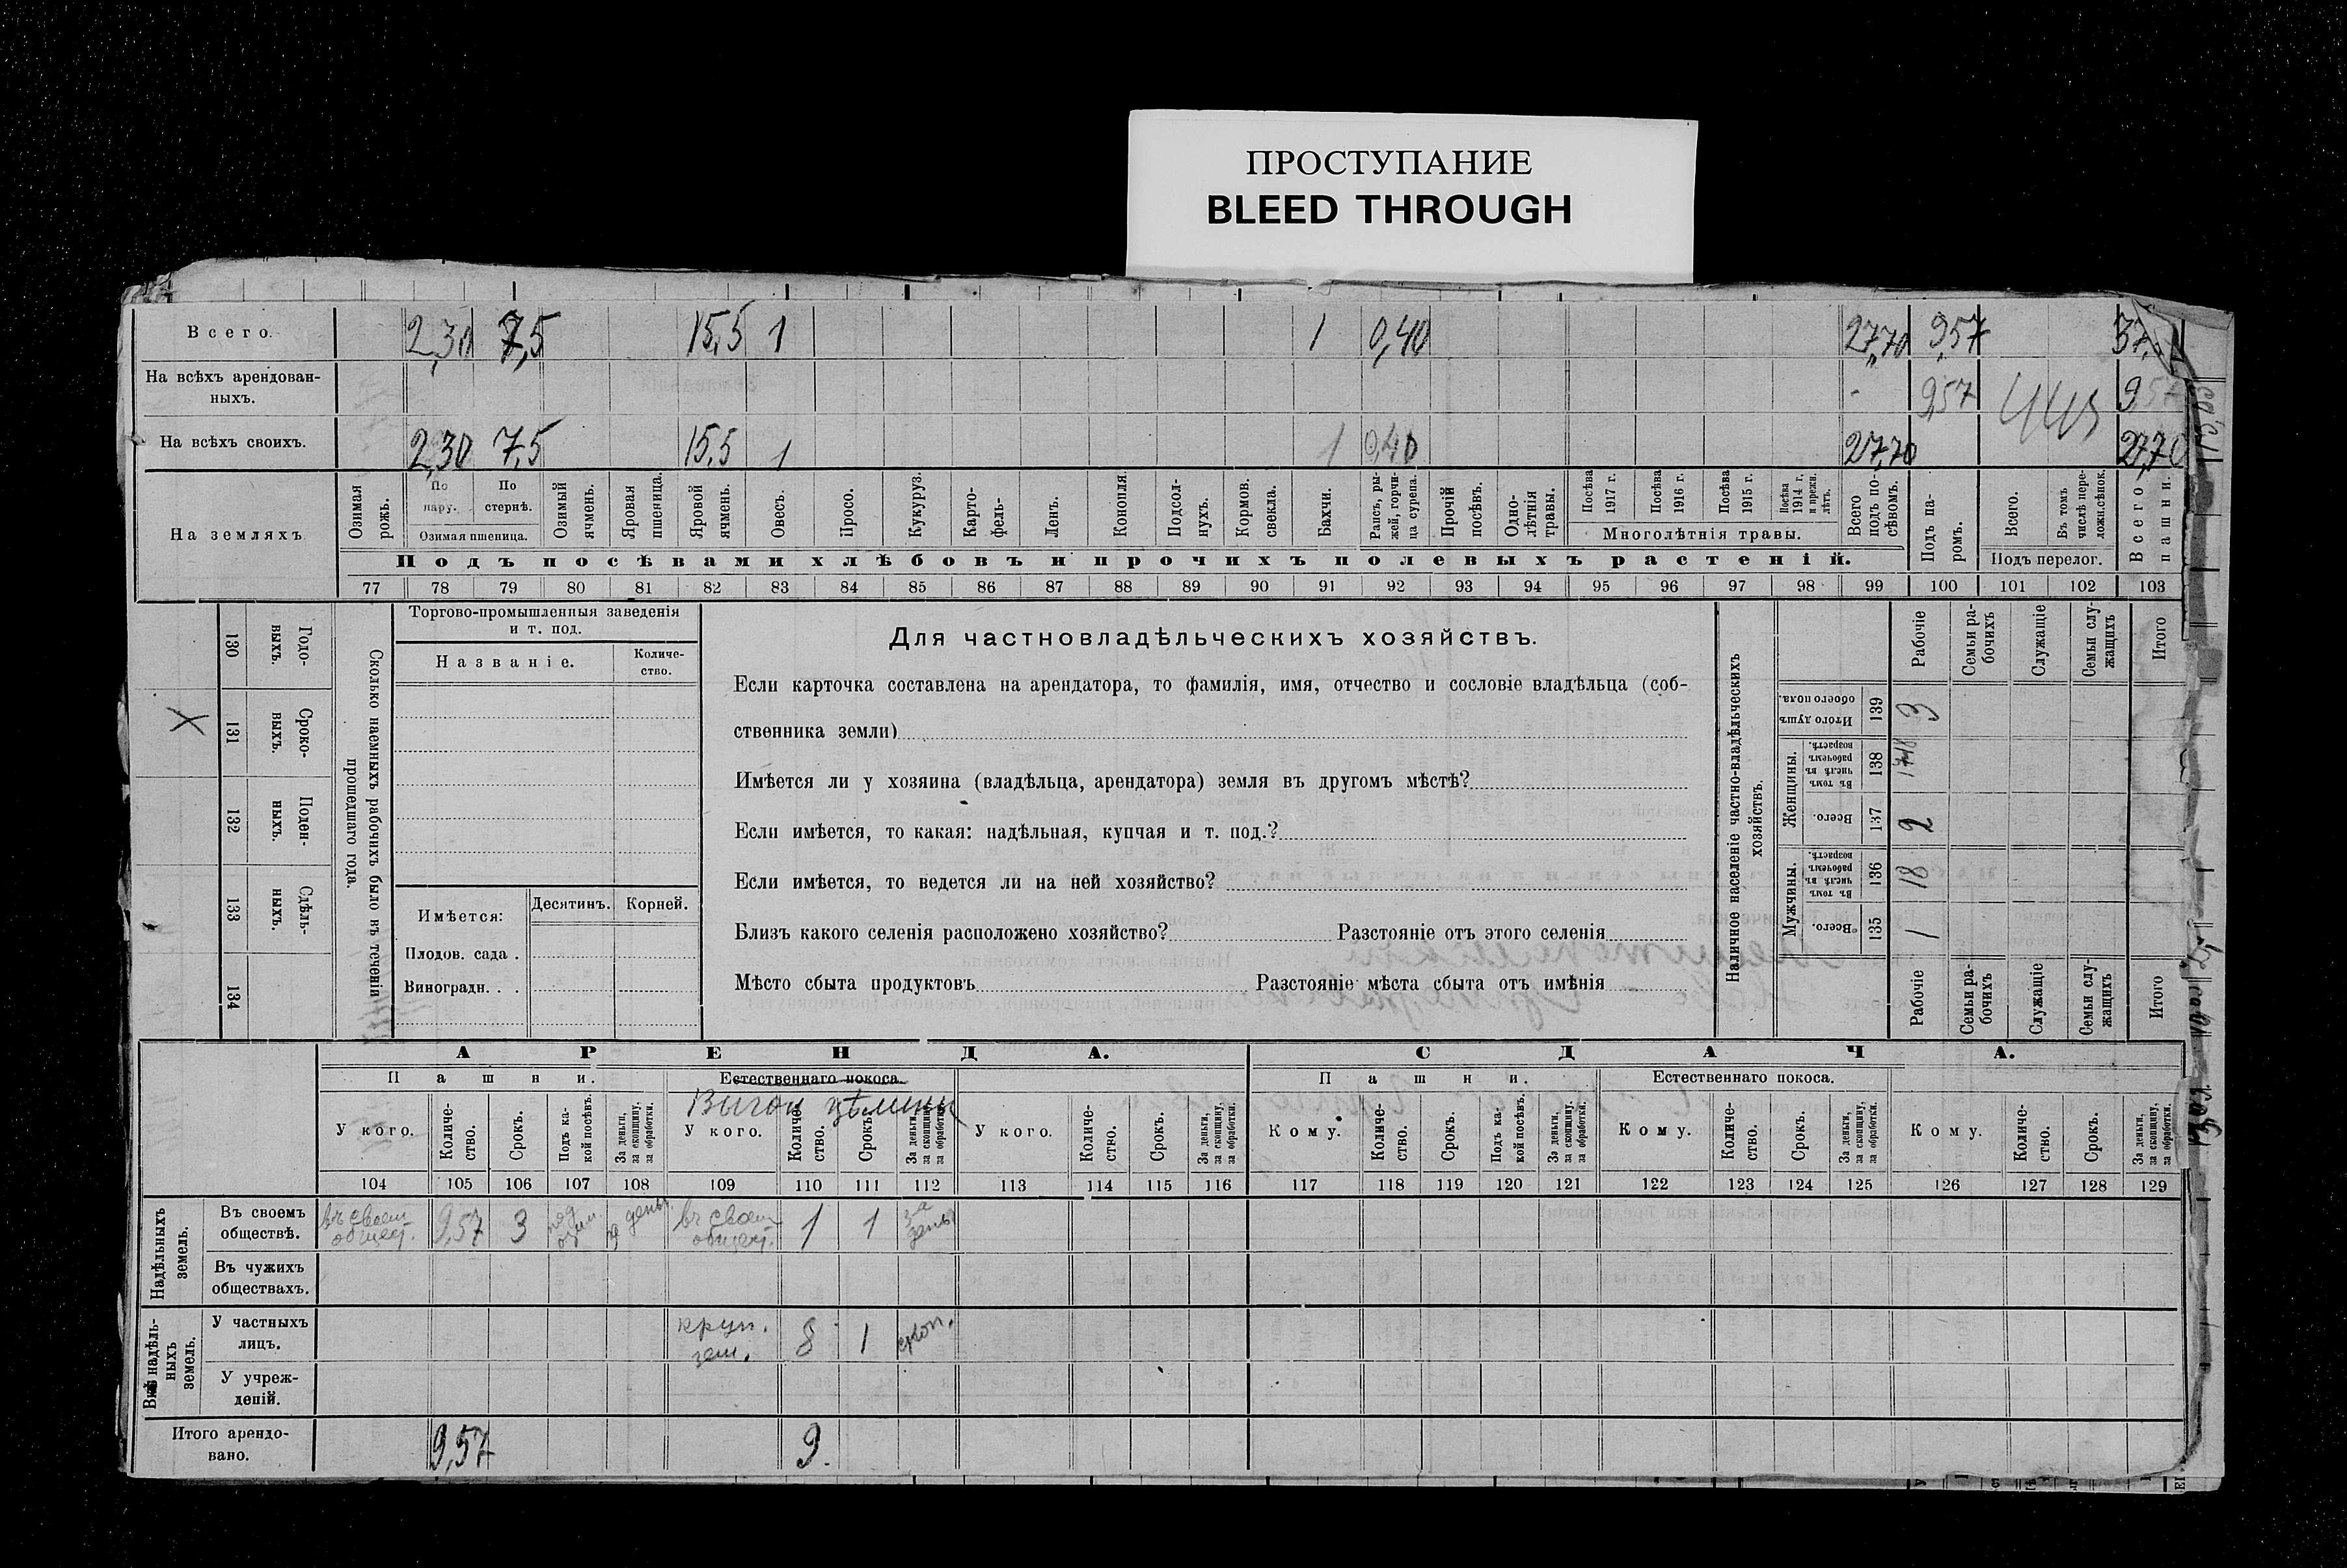 ПРОСТУПАНИЕ
BLEED THROUGH
Всего. 2,30 7,5 15,5 1 1 0,40 27,70 9,57
На всѣхъ арендован-
ныхъ. - 9,57 9,57
На всѣхъ своихъ. 2,30 7,5 15,5 1 1 0,40 27,70 27,70
На земляхъ
Озимая рожь.
По пару.
По стернѣ.
Озимая пшеница.
Озимый ячмень.
Яровая пшеница.
Яровой ячмень.
Овесъ.
Просо.
Кукуруз.
Карто-
фель-
Ленъ.
Конопля.
Подсол-
нухъ.
Кормов. свекла.
Бахчи.
Рапсъ, ры-
жей, горчи-
ца сурепа.
Прочій посѣвъ.
Одно-
лѣтнія травы.
Посѣва 1917 г.
Посѣва 1916 г.
Посѣва 1915 г.
Посѣва 1914 г. и прежн. лѣтъ.
Многолѣтнія травы.
Всего подъ по-
сѣвомъ.
Подъ па-
ромъ.
Всего.
Въ томъ числѣ пере-
ложн. сѣнок.
Подъ перелог.
Всего пашни.
Подъ посѣвами хлѣбовъ и прочихъ полевыхъ растеній.
77 78 79 80 81 82 83 84 85 86 87 88 89 90 91 92 93 94 95 96 97 98 99 100 101 102 103
130 Годо-
выхъ.
131 Сроко-
выхъ.
132 Поден-
ныхъ.
133 Сдѣль-
ныхъ.
134
Сколько наемныхъ рабочихъ было въ теченіи
прошедшаго года.
Торгово-промышленныя заведенія
и т. под.
Названіе.
Количе-
ство.
Имѣется:
Десятинъ. Корней.
Плодов. сада .
Виноградн. . .
Для частновладѣльческихъ хозяйствъ.
Если карточка составлена на арендатора, то фамилія, имя, отчество и сословіе владѣльца (соб-
ственника земли)
Имѣется ли у хозяина (владѣльца, арендатора) земля въ другомъ мѣстѣ?
Если имѣется, то какая: надѣльная, купчая и т. под.?
Если имѣется, то ведется ли на ней хозяйство?
Близъ какого селенія расположено хозяйство? Разстояніе отъ этого селенія
Мѣсто сбыта продуктовъ Разстояніе мѣста сбыта отъ имѣнія
Наличное населеніе частно-владѣльческихъ
хозяйствъ.
Рабочіе
Семьи ра-
бочихъ
Служащіе
Семьи слу-
жащихъ
Итого
Итого душъ обоего пола. 139 3
Женщины.
Въ томъ числѣ въ рабочемъ возрастѣ. 138
Всего. 137 2
Мужчины.
Въ томъ числѣ въ рабочемъ возрастѣ. 136 18
Всего. 135 1
Рабочіе
Семьи ра-
бочихъ
Служащіе
Семьи слу-
жащихъ
Итого
АРЕНДА. СДАЧА.
Пашни. Естественнаго покоса. Пашни. Естественнаго покоса.
Выгон цѣлины
У кого. Количе-
ство. Срокъ. Подъ ка-
кой посѣвъ. За деньги, за скопщину, за обработки.
У кого. Количе-
ство. Срокъ. За деньги, за скопщину, за обработки.
У кого. Количе-
ство. Срокъ. За деньги, за скопщину, за обработки.
Кому. Количе-
ство. Срокъ. Подъ ка-
кой посѣвъ. За деньги, за скопщину, за обработки.
Кому. Количе-
ство. Срокъ. За деньги, за скопщину, за обработки.
Кому. Количе-
ство. Срокъ. За деньги, за скопщину, за обработки.
104 105 106 107 108 109 110 111 112 113 114 115 116 117 118 119 120 121 122 123 124 125 126 127 128 129
Надѣльныхъ земель.
Въ своемъ
обществѣ. въ своем общест. 9,57 3 под озим. за деньг. въ своем общест. 1 1 за деньг
Въ чужихъ
обществахъ.
Внѣ надѣль-
ныхъ
земель.
У частныхъ
лицъ. круп. зем. 8 1
У учреж-
деній.
Итого арендо-
вано. 9,57 9.